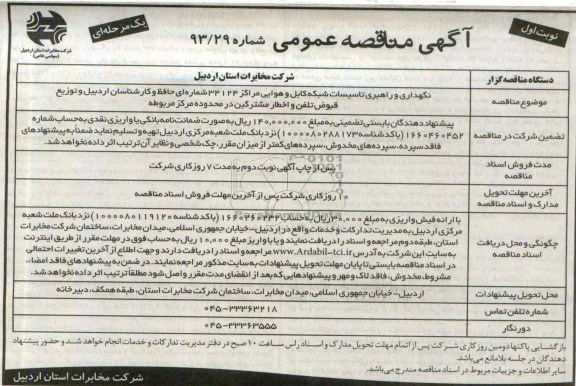 نوبت اول
آگهی مناقصه عمومی شماره ۹۳/۲۹
یک مرحله‌ای
شرکت مخابرات استان اردبیل
(سهامی خاص)
دستگاه مناقصه گزار
شرکت مخابرات استان اردبیل
موضوع مناقصه
نگهداری و راهبری تاسیسات شبکه کابل و هوایی مراکز ۳۴۱۲۴ شماره‌ای حافظ و کارشناسان اردبیل و توزیع
قبوض تلفن و اخطار مشترکین در محدوده مرکز مربوطه
تضمین شرکت در مناقصه
پیشنهاد دهندگان بایستی تضمینی به مبلغ ۱۴۰,۰۰۰,۰۰۰ ریال به صورت ضمانت نامه بانکی یا واریزی نقدی به حساب شماره
۱۶۶۰۴۶۰۴۵۲ (با کد شناسه ۱۰۰۰۰۰۸۰۲۸۸۱۷۳) نزد بانک ملت شعبه مرکزی اردبیل تهیه و تسلیم نماید ضمنا به پیشنهادهای
فاقد سپرده، سپرده‌های مخدوش، سپرده‌های کمتر از میزان مقرر، چک شخصی و نظایر آن ترتیب اثر داده نخواهد شد.
مدت فروش اسناد
مناقصه
پس از چاپ آگهی نوبت دوم به مدت ۷ روز کاری شرکت
آخرین مهلت تحویل
مدارک و اسناد مناقصه
۱۰ روز کاری شرکت پس از آخرین مهلت فروش اسناد مناقصه
چگونگی و محل دریافت
اسناد مناقصه
با ارائه فیش واریزی به مبلغ ۳۰,۰۰۰ ریال به حساب (با کد شناسه ۱۰۰۰۰۰۸۰۱۱۹۱۲۰) نزد بانک ملت شعبه
مرکزی اردبیل به مدیریت تدارکات و خدمات واقع در اردبیل - خیابان جمهوری اسلامی، میدان مخابرات، ساختمان شرکت مخابرات
استان، طبقه دوم مراجعه و اسناد را دریافت نمایند و یا با واریز مبلغ ۱۰,۰۰۰ ریال به حساب فوق در مهلت مقرر از طریق اینترنت
به سایت این شرکت به آدرس www.Ardabil-tci.ir مراجعه و اسناد را دریافت دارند و جهت اطلاع از آخرین تغییرات احتمالی
در اسناد مناقصه بایستی تا پایان مهلت تحویل پیشنهادات به سایت مذکور مراجعه نمایند. در ضمن به پیشنهادهای فاقد امضاء،
مشروط، مخدوش، فاقد لاک و مهر و پیشنهادهایی که بعد از انقضای مدت مقرر واصل شود مطلقاً ترتیب اثر داده نخواهد شد.
محل تحویل پیشنهادات
اردبیل - خیابان جمهوری اسلامی، میدان مخابرات، ساختمان شرکت مخابرات استان، طبقه همکف، دبیرخانه
شماره تلفن تماس
۰۴۵-۳۳۳۶۳۲۱۸
دورنگار
۰۴۵-۳۳۳۶۳۵۵۵
بازگشایی پاکتها دومین روز کاری شرکت پس از اتمام مهلت تحویل مدارک و اسناد راس ساعت ۱۰ صبح در دفتر مدیریت تدارکات و خدمات انجام خواهد شد و حضور پیشنهاد
دهندگان در جلسه بلامانع می‌باشد.
سایر اطلاعات و جزییات مربوط در اسناد مناقصه مندرج می‌باشد.
شرکت مخابرات استان اردبیل